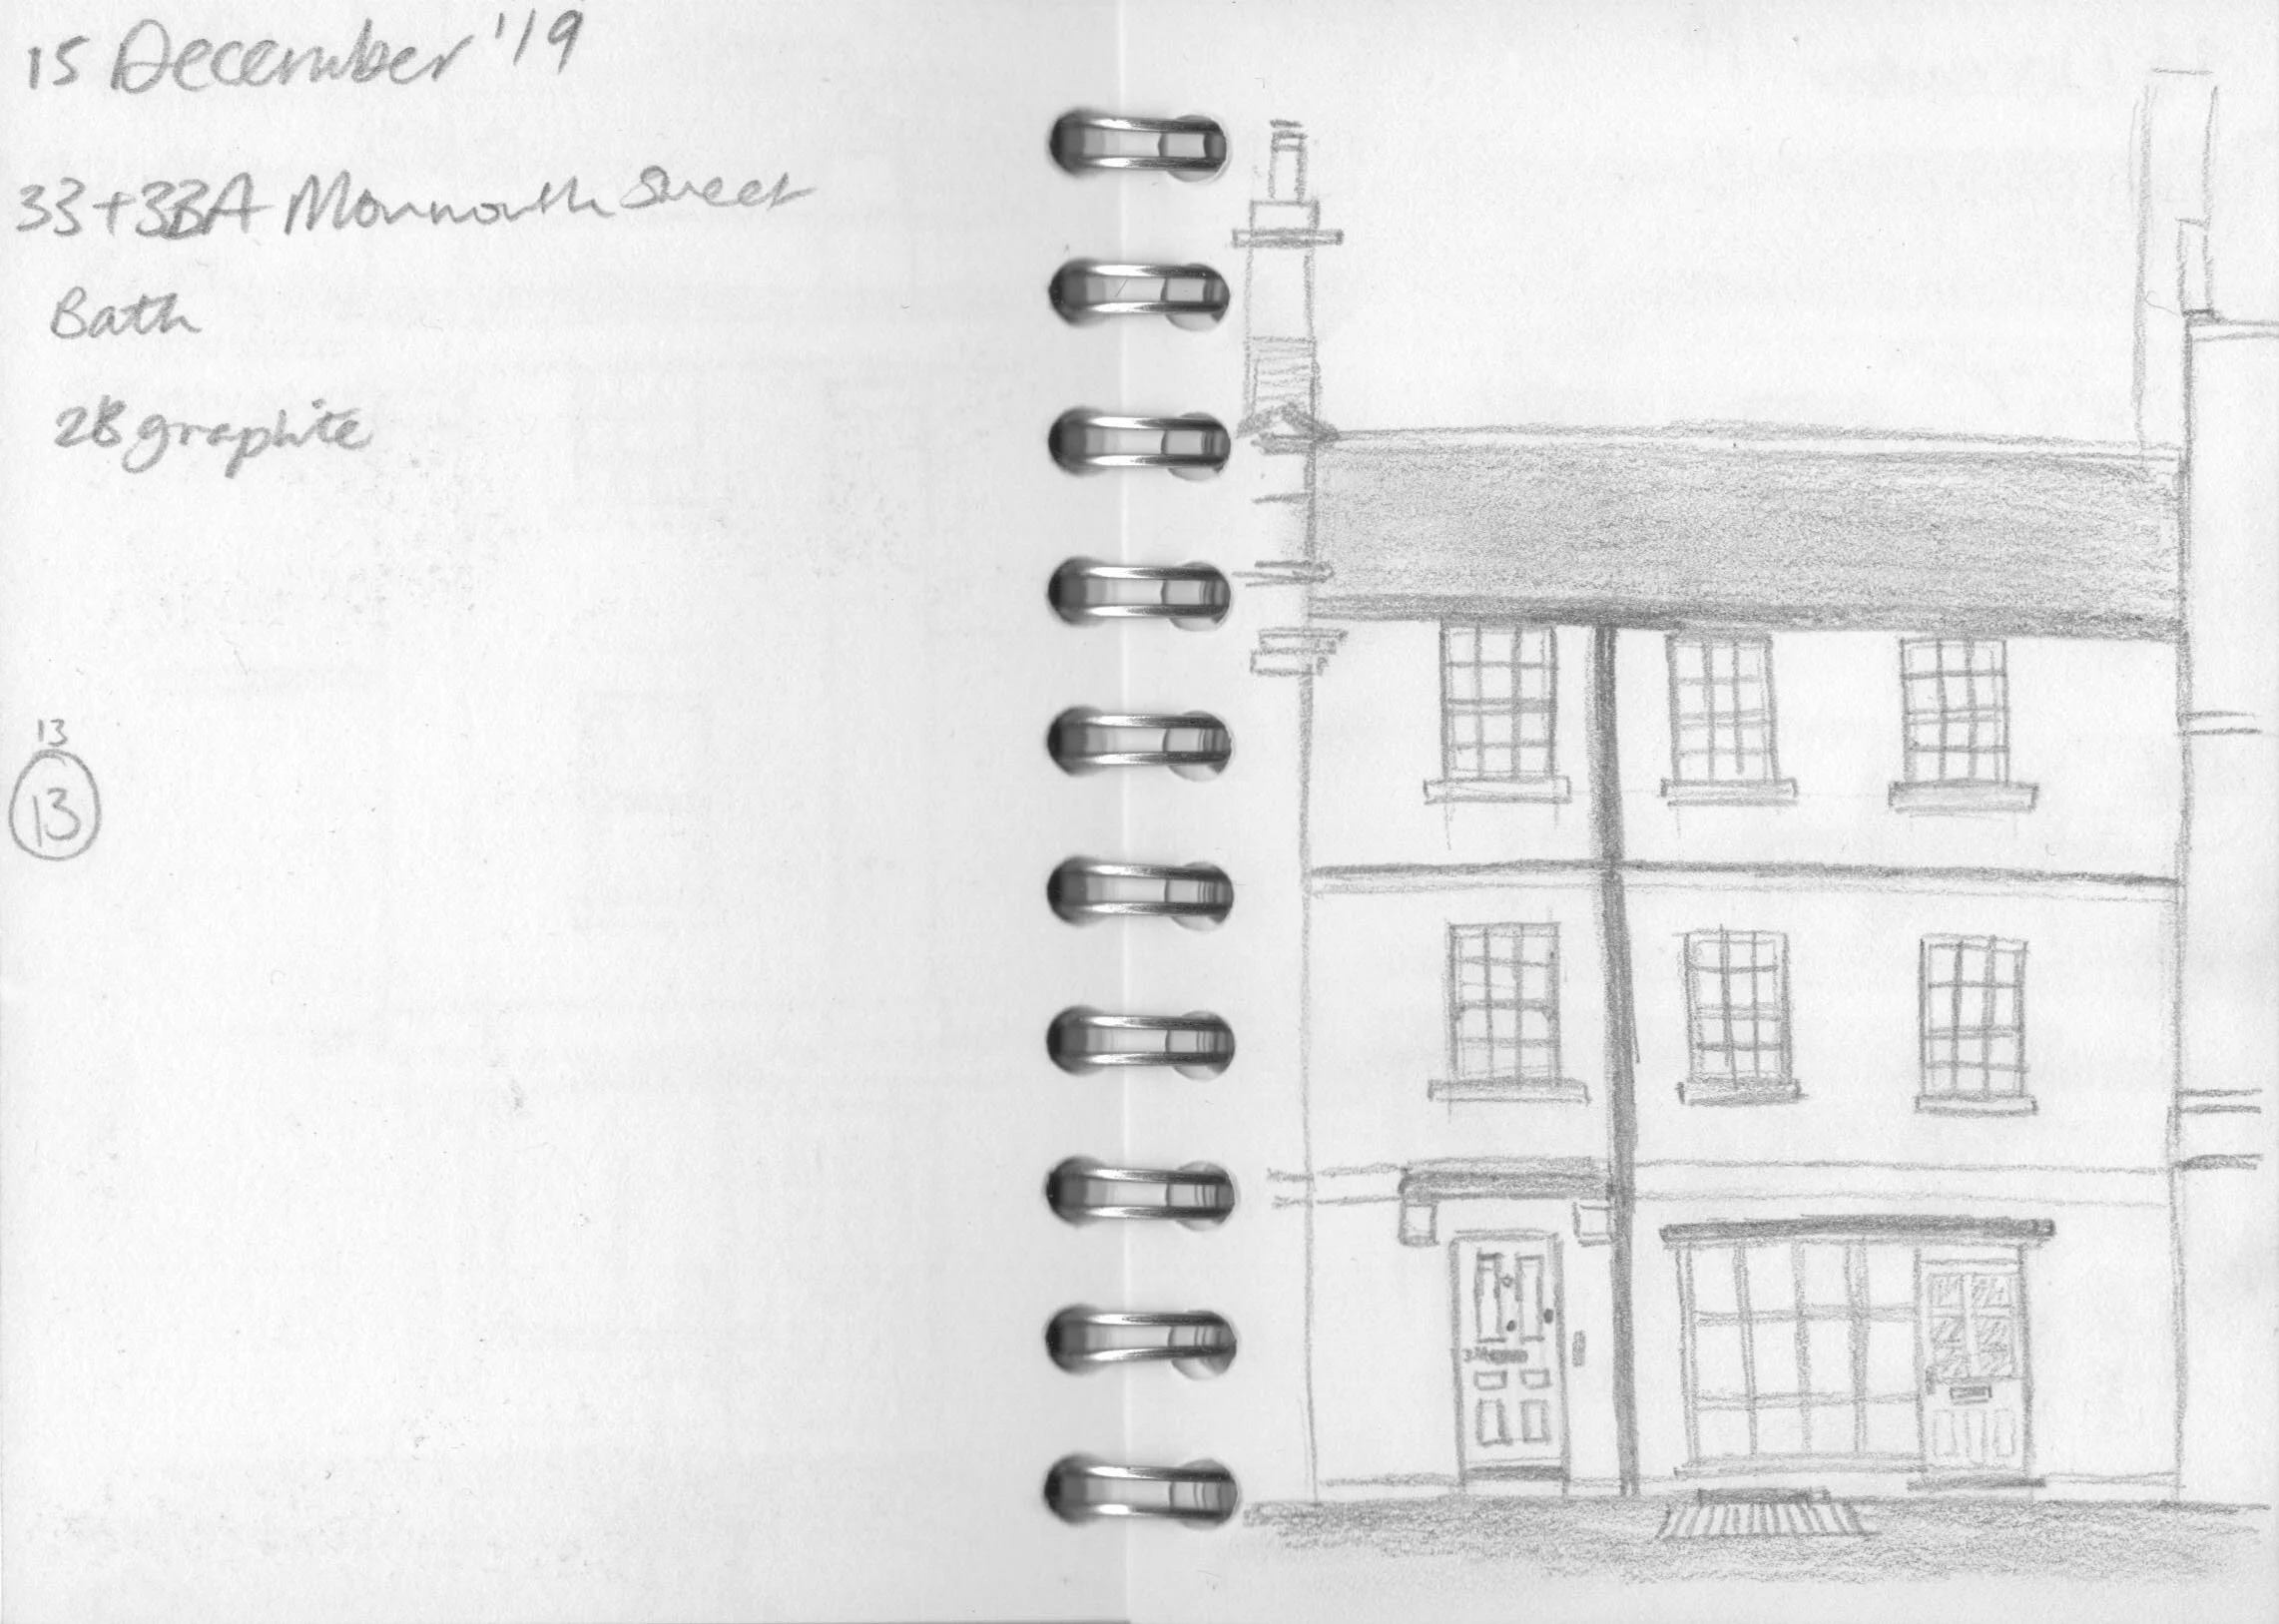 15 December '19
33+33A Monmouth Street
Bath
2B graphite
13
13